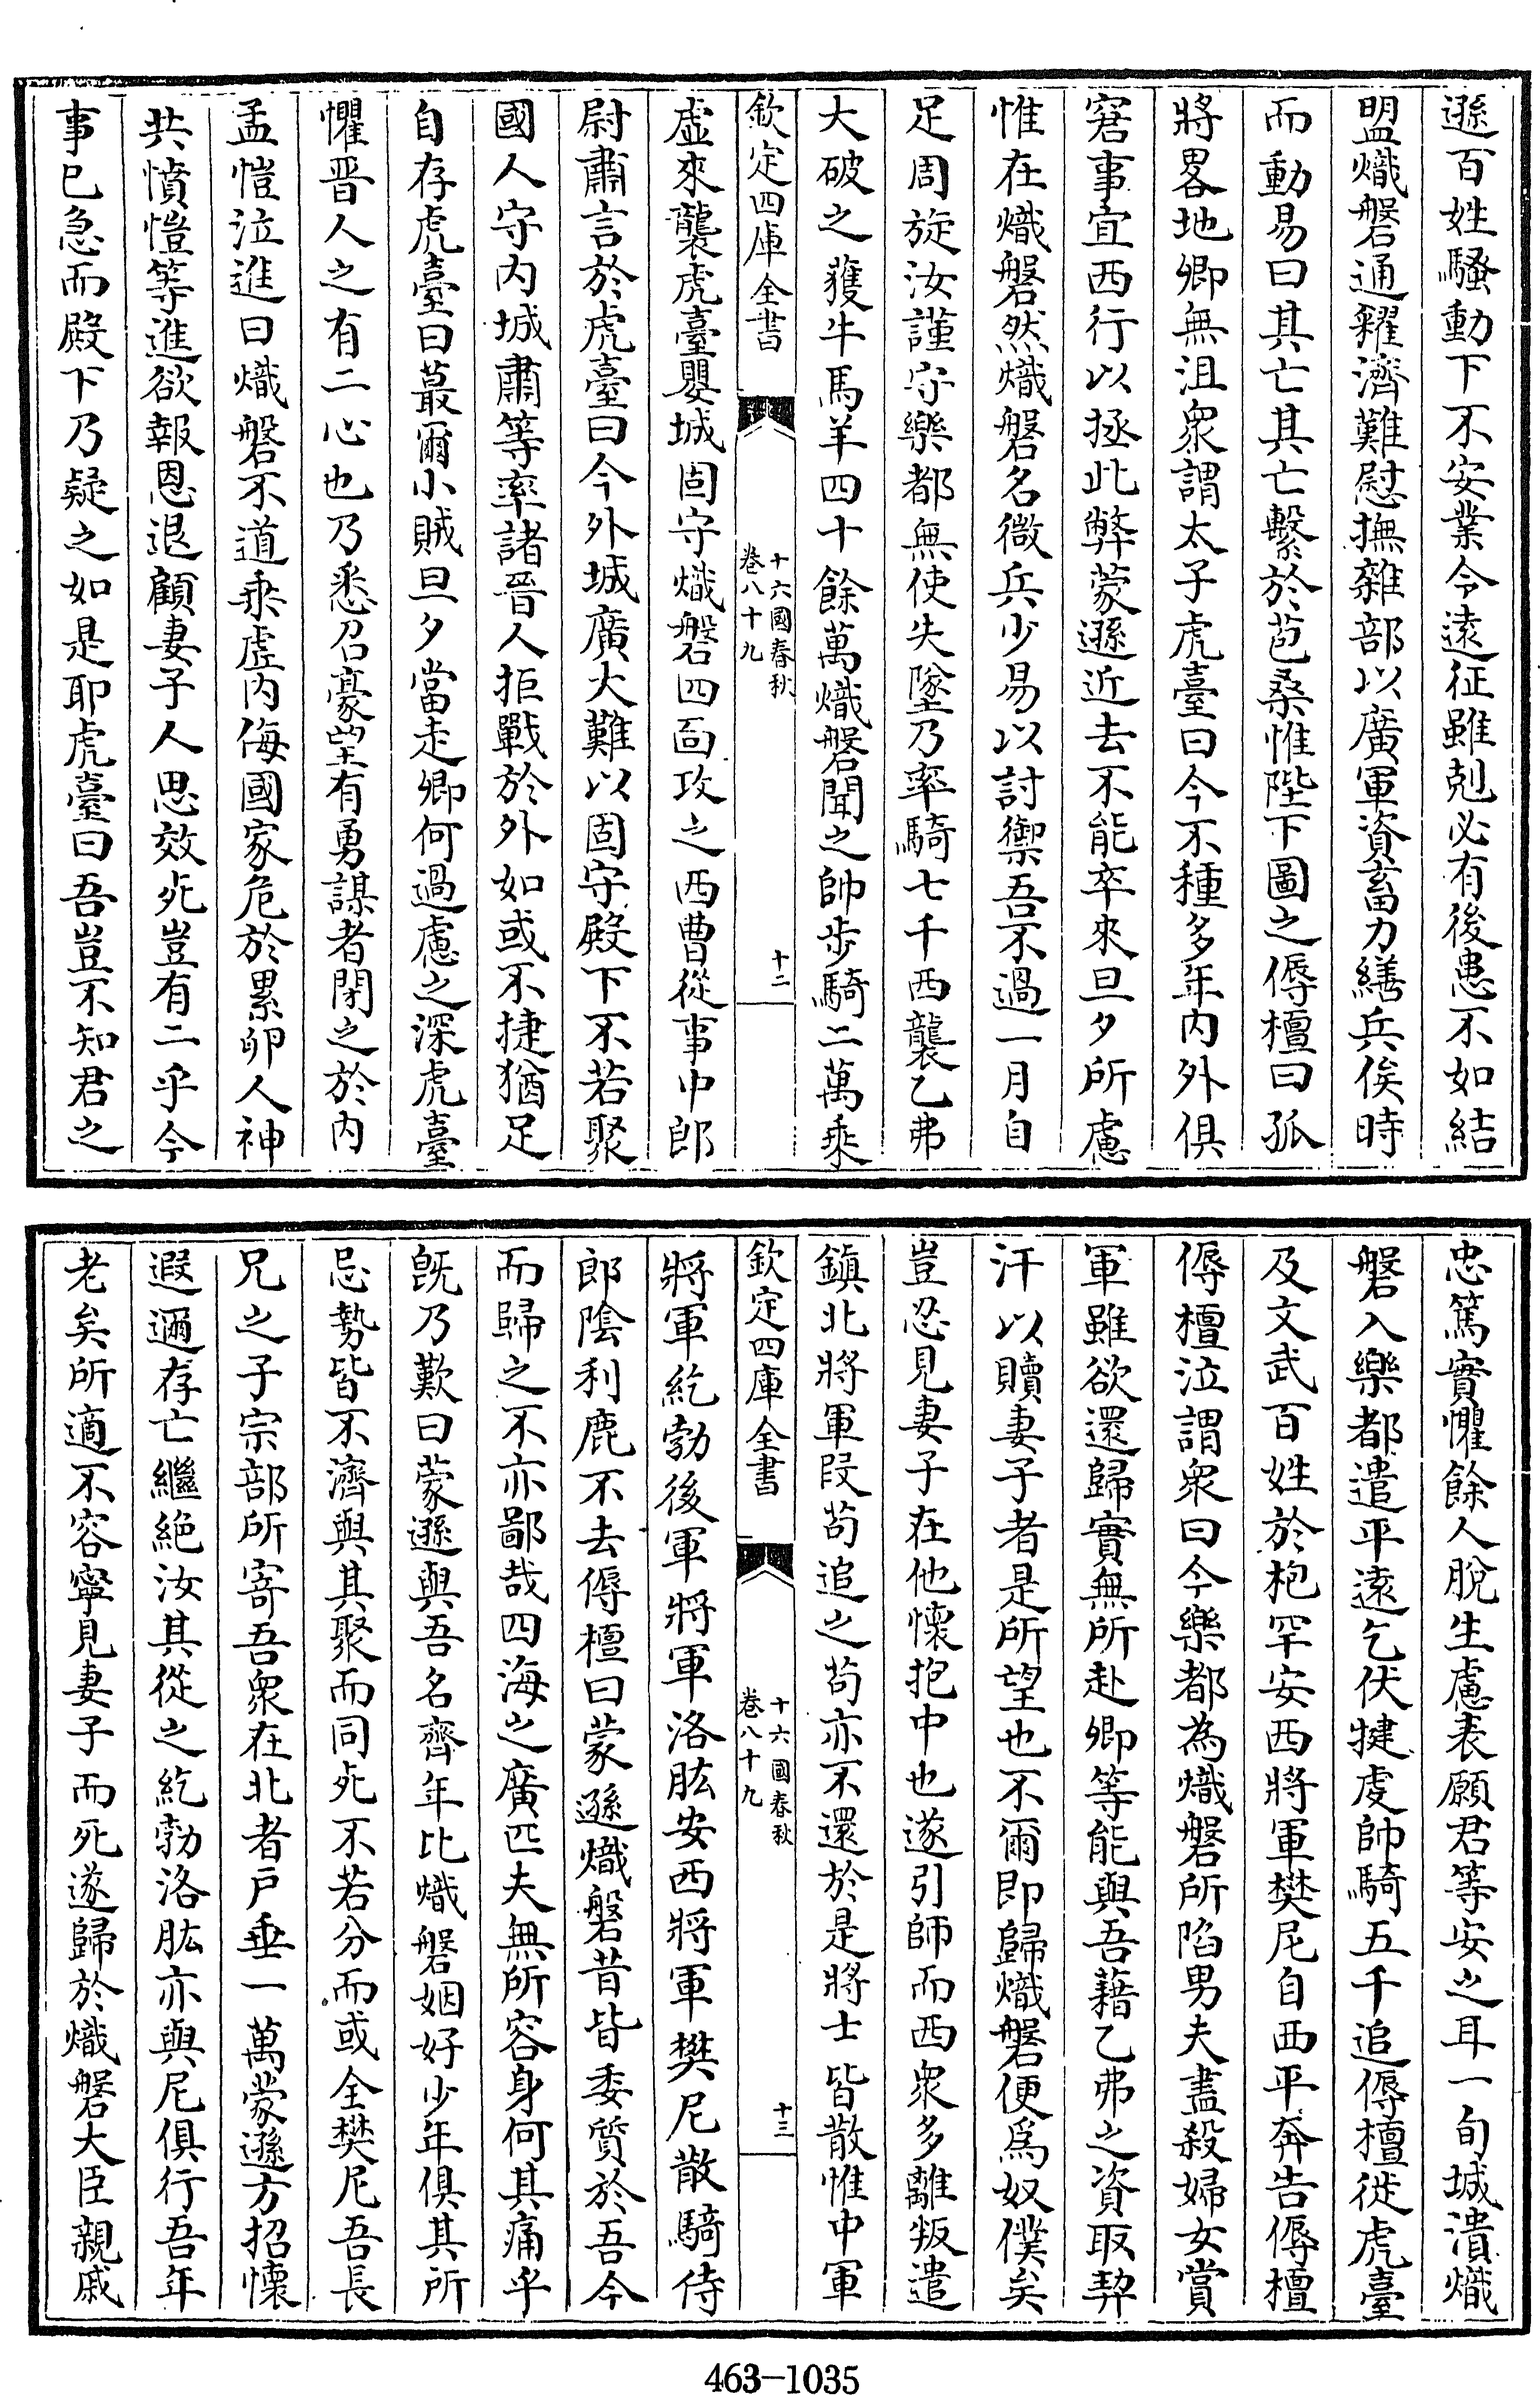 遜百姓騷動下不安業今遠征雖剋必有後患不如結
盟熾磐通糴濟難慰撫雜部以廣軍資畜力繕兵俟時
而動易曰其亡其亡繫於苞桑惟陛下圖之傉檀曰孤
將畧地卿無沮衆謂太子虎臺曰今不種多年內外俱
窘事宜西行以拯此弊蒙遜近去不能卒來旦夕所慮
惟在熾磐然熾磐名微兵少易以討禦吾不過一月自
足周旋汝謹守樂都無使失墜乃率騎七千西襲乙弗
大破之獲牛馬羊四十餘萬熾磐聞之帥步騎二萬乘
欽定四庫全書
十六國春秋
卷八十九
十二
虛來襲虎臺嬰城固守熾磐四面攻之西曹從事中郎
尉肅言於虎臺曰今外城廣大難以固守殿下不若聚
國人守內城肅等率諸晉人拒戰於外如或不捷猶足
自存虎臺曰蕞爾小賊旦夕當走卿何過慮之深虎臺
懼晉人之有二心也乃悉召豪望有勇謀者閉之於內
孟愷泣進曰熾磐不道乘虛內侮國家危於累卵人神
共憤愷等進欲報恩退顧妻子人思效死豈有二乎今
事已急而殿下乃疑之如是耶虎臺曰吾豈不知君之
忠篤實懼餘人脫生慮表願君等安之耳一旬城潰熾
磐入樂都遣平遠乞伏揵虔帥騎五千追傉檀徙虎臺
及文武百姓於枹罕安西將軍樊尼自西平奔告傉檀
傉檀泣謂衆曰今樂都為熾磐所陷男夫盡殺婦女賞
軍雖欲還歸實無所赴卿等能與吾藉乙弗之資取契
汗以贖妻子者是所望也不爾即歸熾磐便爲奴僕矣
豈忍見妻子在他懷抱中也遂引師而西衆多離叛遣
鎮北將軍段茍追之茍亦不還於是將士皆散惟中軍
欽定四庫全書
十六國春秋
卷八十九
十三
將軍紇勃後軍將軍洛肱安西將軍樊尼散騎侍
郎陰利鹿不去傉檀曰蒙遜熾磐昔皆委質於吾今
而歸之不亦鄙哉四海之廣匹夫無所容身何其痛乎
既乃歎曰蒙遜與吾名齊年比熾磐姻好少年俱其所
忌勢皆不濟與其聚而同死不若分而或全樊尼吾長
兄之子宗部所寄吾衆在北者戶垂一萬蒙遜方招懷
遐邇存亡繼絕汝其從之紇勃洛肱亦與尼俱行吾年
老矣所適不容寧見妻子而死遂歸於熾磐大臣親戚
463-1035